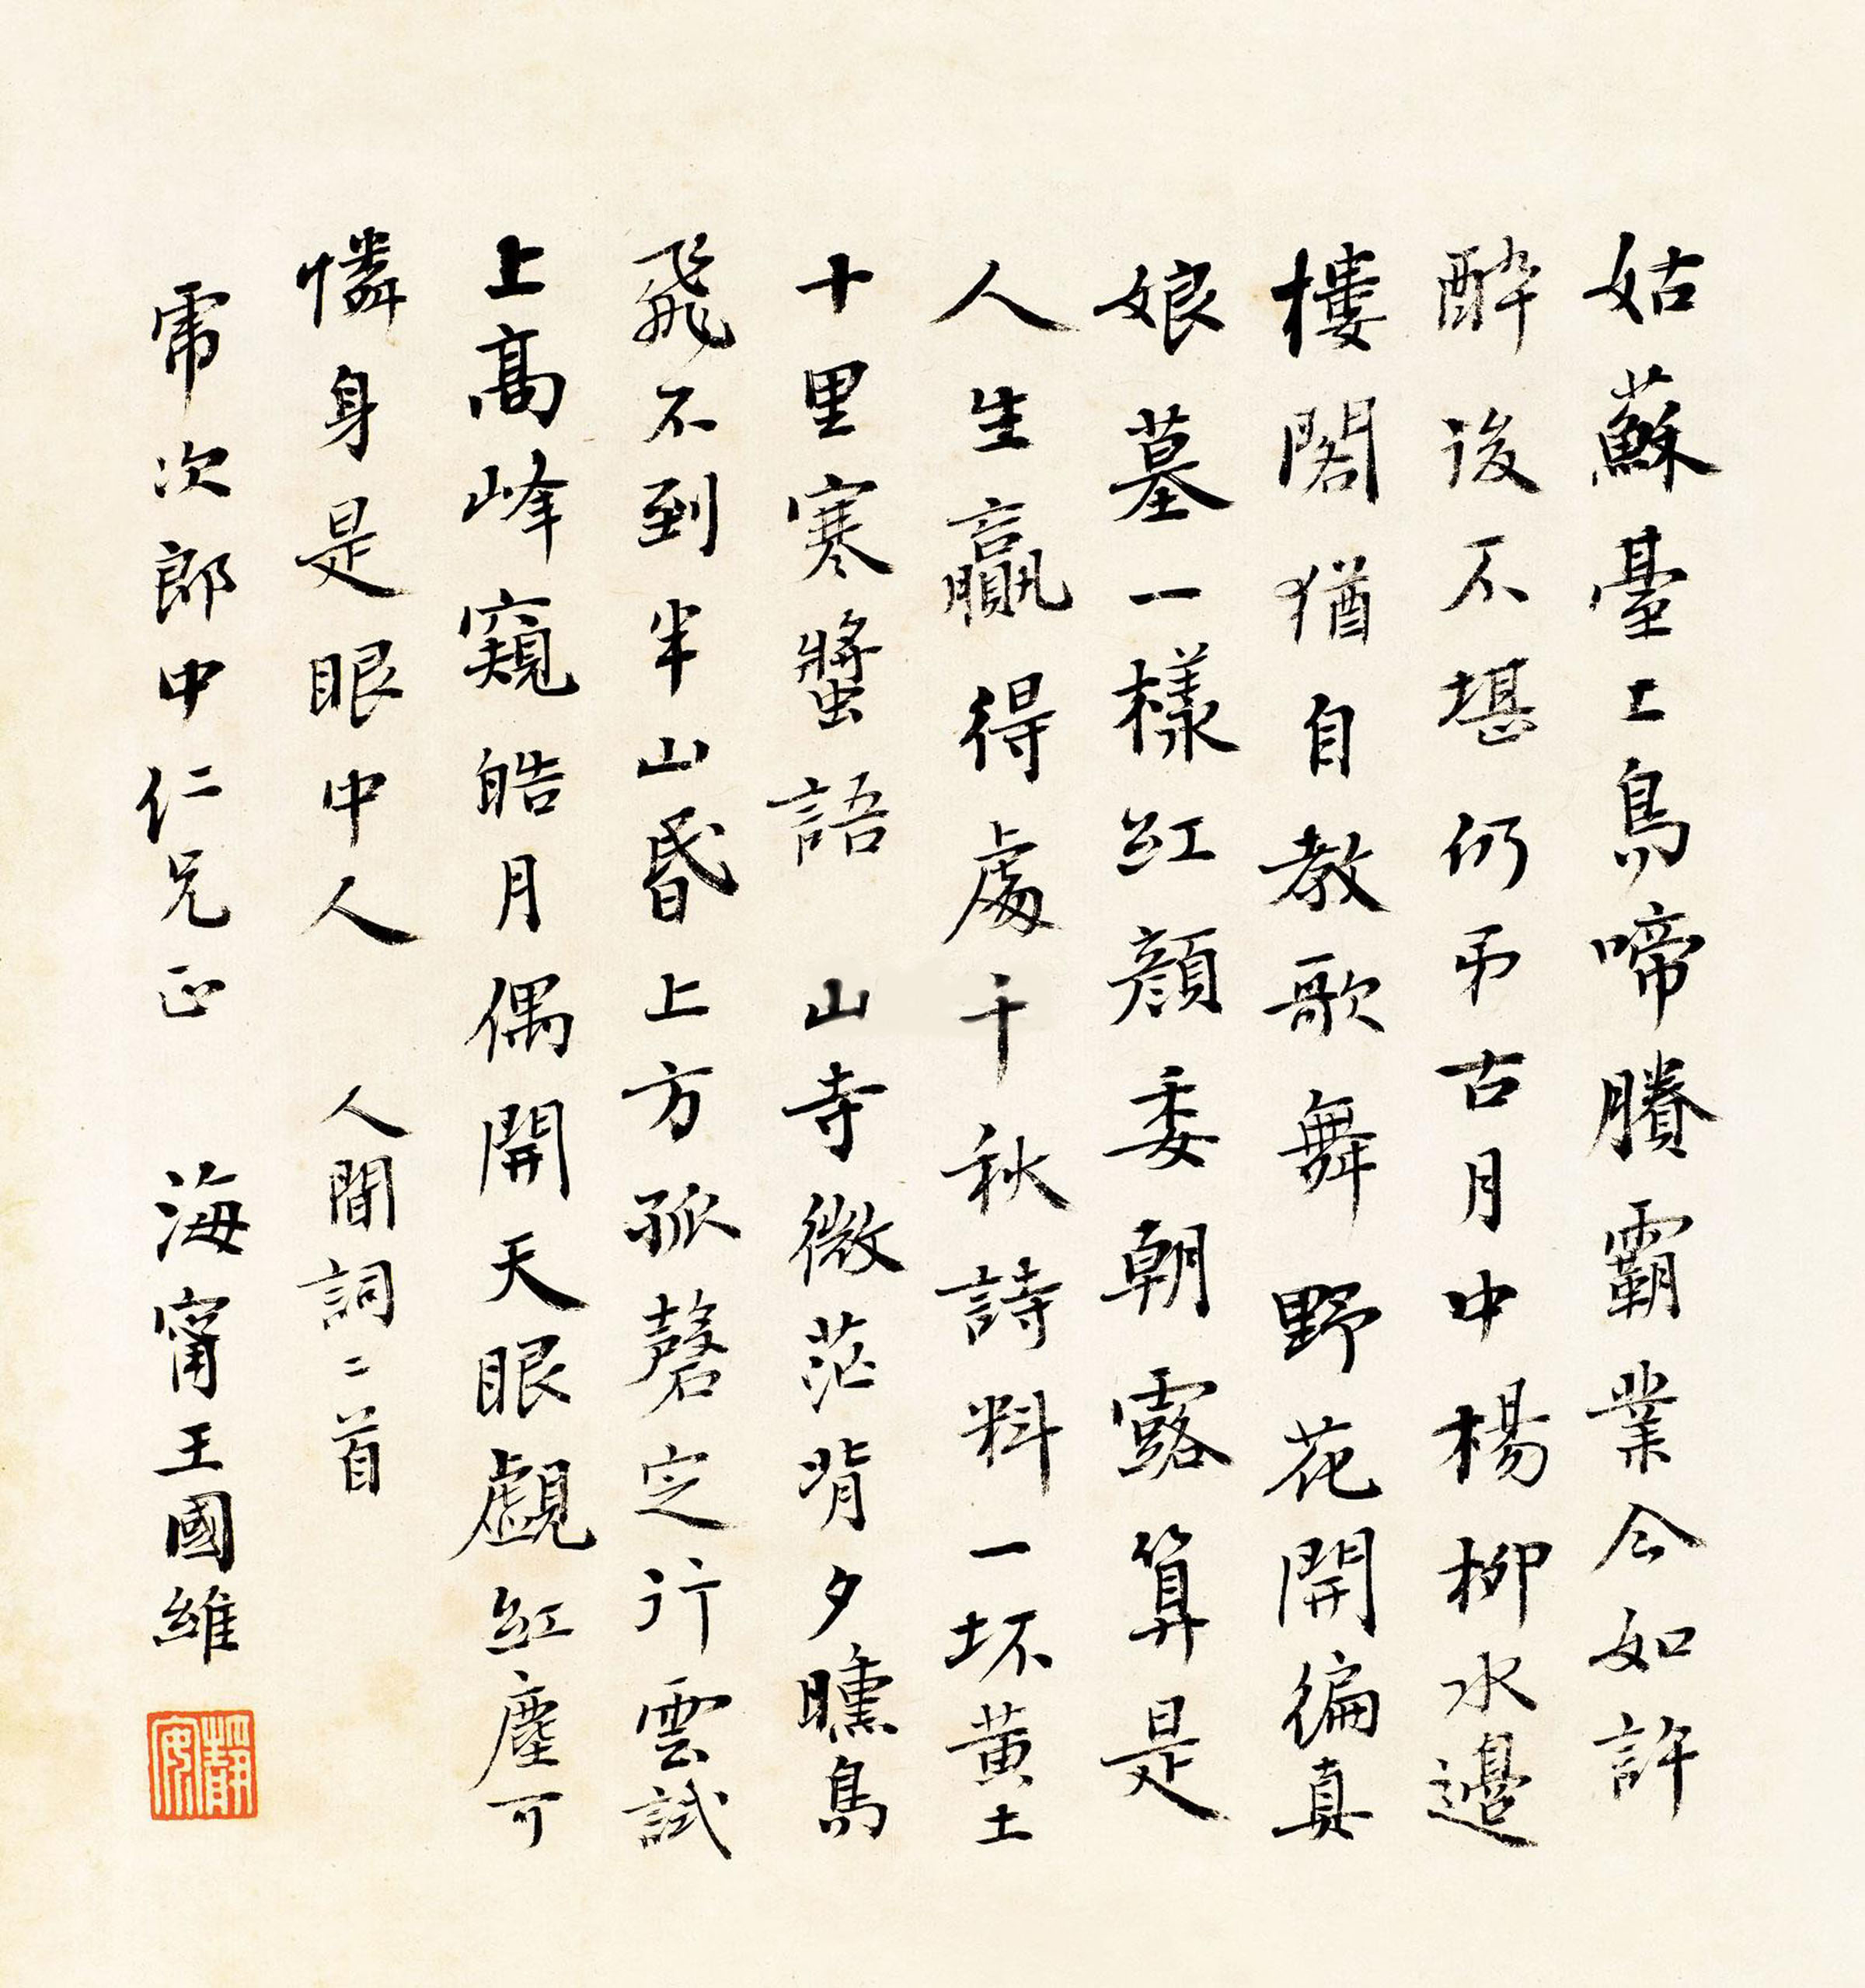 姑蘇臺上烏啼賸霸業今如許
醉後不堪仍弔古月中楊柳水邊
樓閣猶自教歌舞野花開徧真
娘墓一樣紅顏委朝露算是
人生贏得處千秋詩料一坏黃土
十里寒螿語山寺微茫背夕曛鳥
飛不到半山昏上方孤磬定行雲試
上高峰窺皓月偶開天眼覷紅塵可
憐身是眼中人人間詞二首
帋次郎中仁兄正海甯王國維
靜安